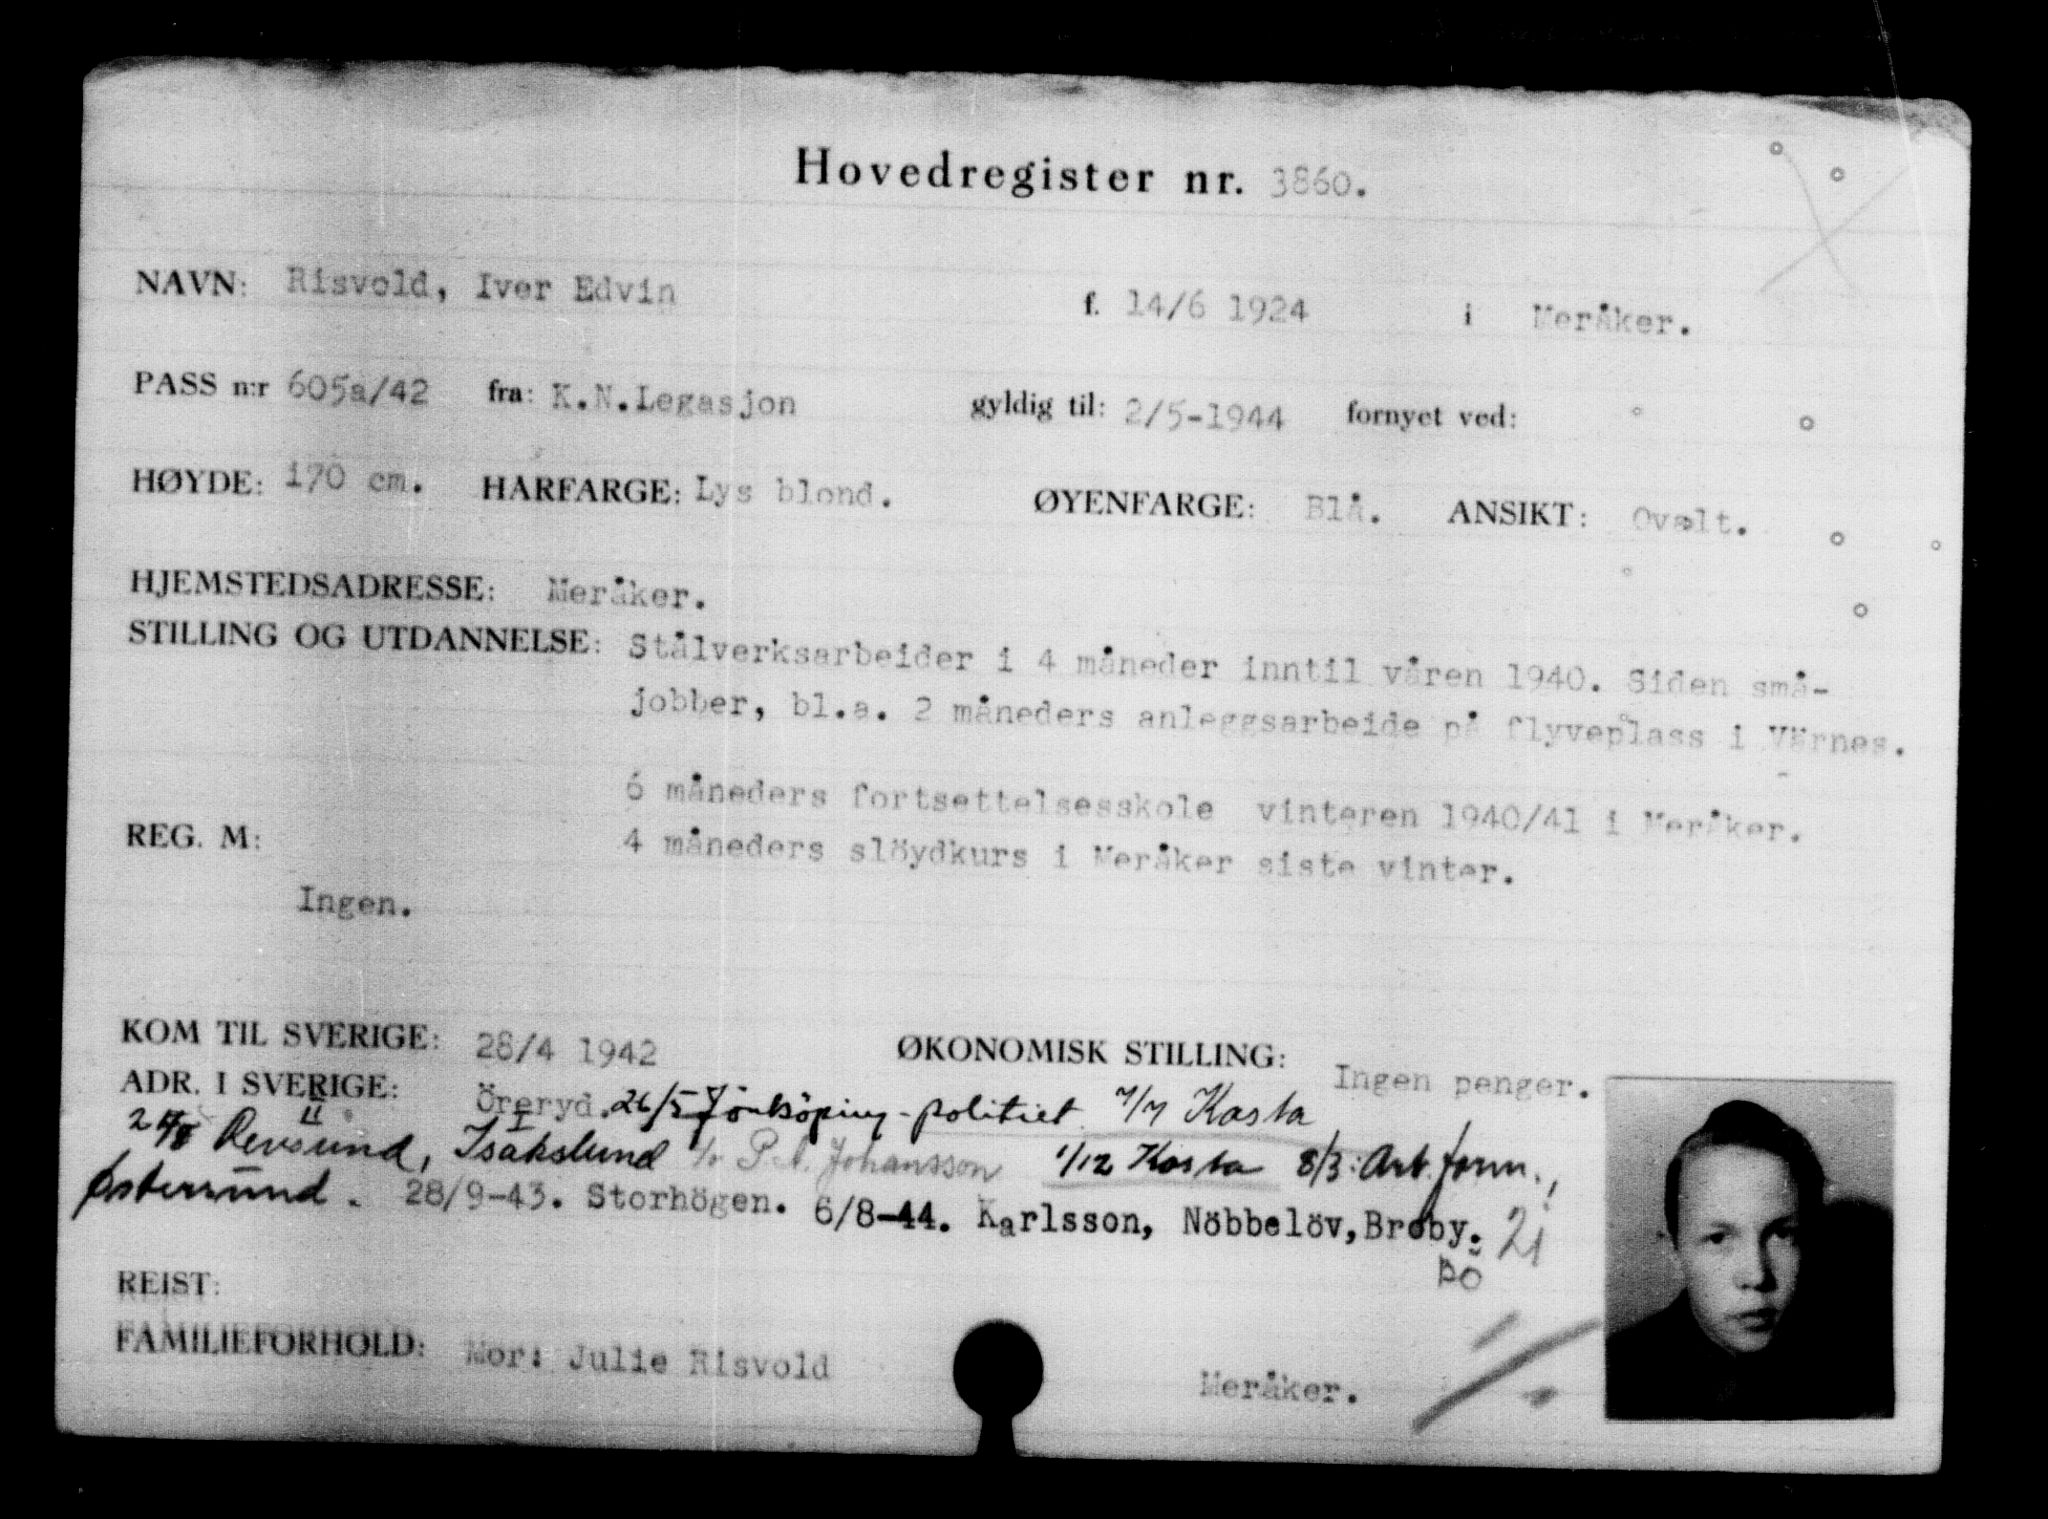 Hovedregister nr. 3860.
NAVN: Risvold, Iver Edvin f. 14/6 1924 i Meråker.
PASS n:r 605a/42 fra: K.N.Legasjon gyldig til: 2/5-1944 fornyet ved:
HØYDE: 170 cm. HARFARGE: Lys blond. ØYENFARGE: Blå. ANSIKT: Ovalt.
HJEMSTEDSADRESSE: Meråker.
STILLING OG UTDANNELSE: Stålverksarbeider i 4 måneder inntil våren 1940. Siden små-
jobber, bl.a. 2 måneders anleggsarbeide på flyveplass i Värnes.
6 måneders fortsettelsesskole vinteren 1940/41 i Meråker.
REG. M: 4 måneders slöydkurs i Meråker siste vinter.
Ingen.
KOM TIL SVERIGE: 28/4 1942 ØKONOMISK STILLING: Ingen penger.
ADR. I SVERIGE: Öreryd. 26/5 Jönköping-politiet 7/7 Kosta
II I
Revsund, Isakslund Johansson 1/12 Kosta 8/3: Arb.form.,
Østersund. 28/9-43. Storhögen. 6/8-44. Karlsson, Nöbbelöv, Broby. 21
REIST:
FAMILIEFORHOLD: Mor: Julie Risvold Meråker.